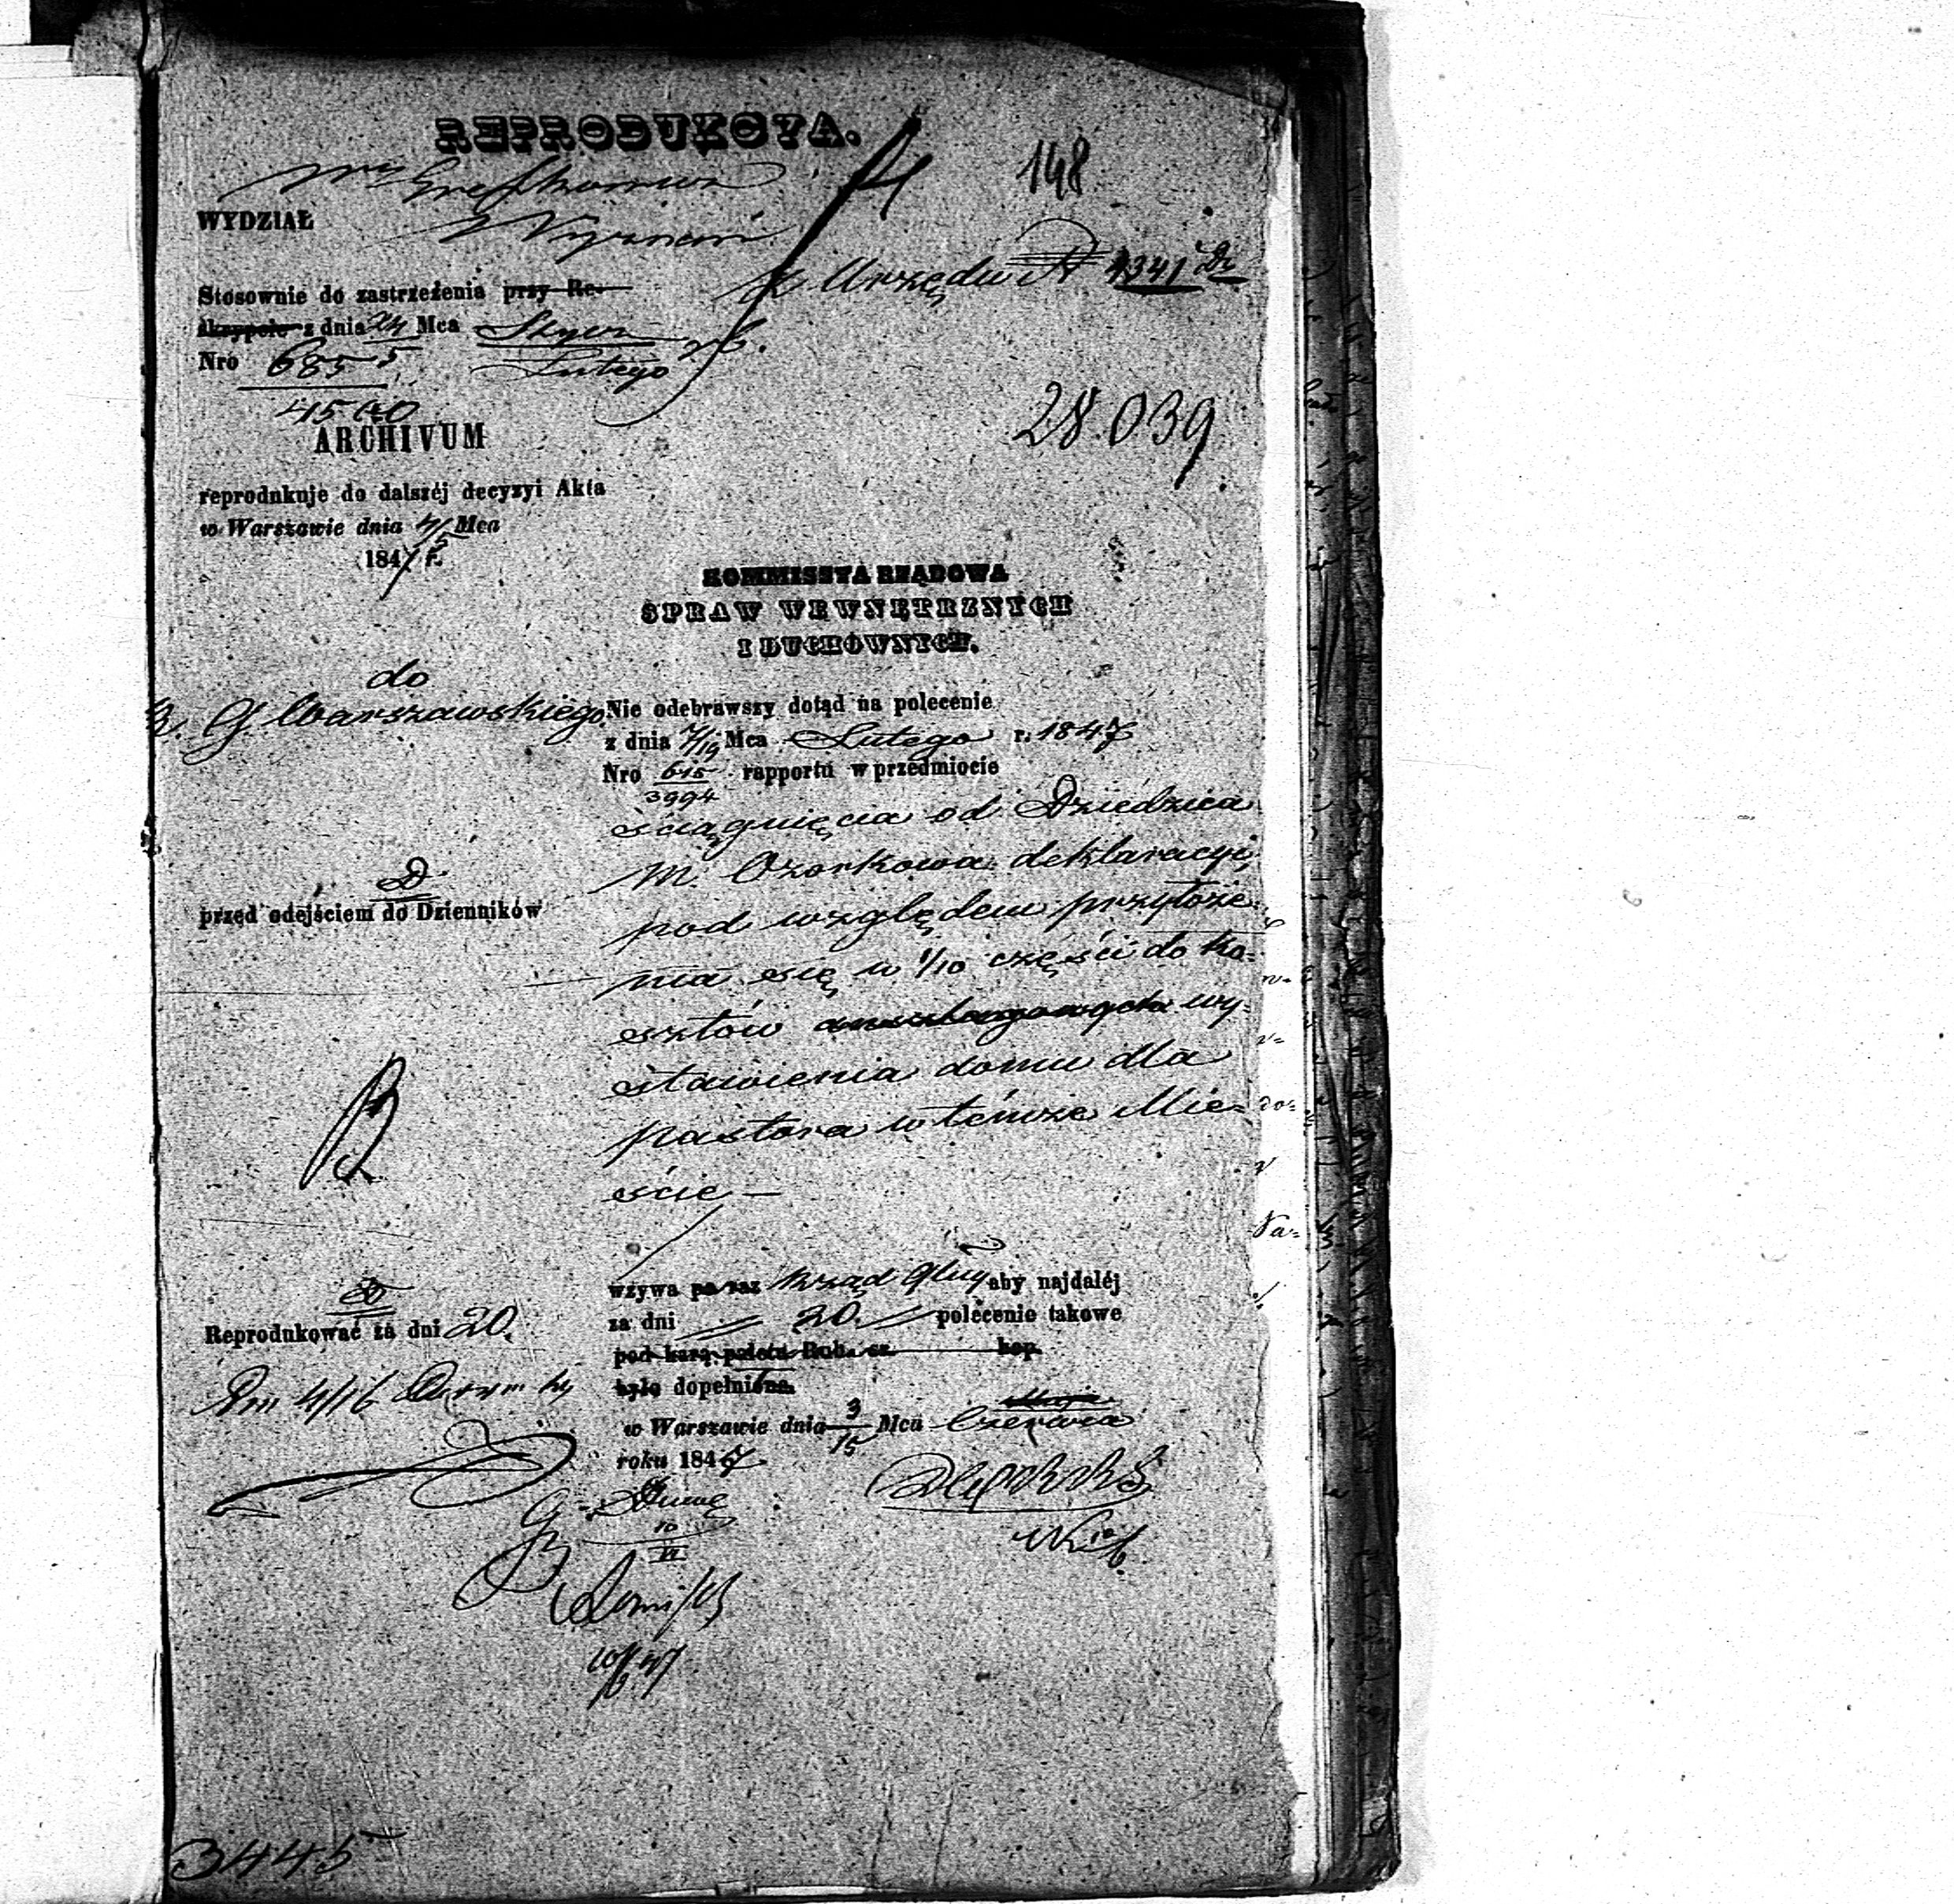 REPRODUKCYA.
148
WYDZIAŁ Wyznań
z Urzędu N 4341
Stosownie do zastrzeżenia przy Re-
skrypcie z dnia 24 Mca Stycz
Nro 685 5 Lutego
4500
28.039
ARCHIVUM
reprodukuje do dalszéj decyzyi Akta
w Warszawie dnia 4/5 Mca
1847 r.
KOMMISSYA RZĄDOWA
SPRAW WEWNĘTRZNYCH
I DUCHOWNYCH.
do
R. G. Warszawskiego
Nie odebrawszy dotąd na polecenie
z dnia 7/19 Mca Lutego r. 1847
Nro 615 rapportu w przedmiocie
3994
ściągnięcia od Dziedzica
m. Ozorkowa deklaracyi,
pod względem przyłoże-
nia się w 1/10 części do ko-
sztów anszlagowych wy-
stawienia domu dla
pastora w témże Mie-
ście —
D
przed odejściem do Dzienników
wzywa po raz Rząd Gluy aby najdaléj
za dni 20. polecenie takowe
pod karą palety Rub. sr. kop.
było dopełnione.
w Warszawie dnia 3/15 Mca Czerwca
roku 1847
Reprodukować za dni 20.
10
VI
10/6 47
3445